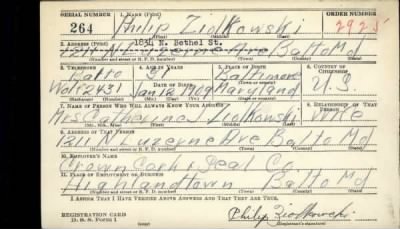 SERIAL NUMBER 1. NAME (Print) ORDER NUMBER
264 Philip Ziolkowski 2925
(First) (Middle) (Last)
1834 N. Bethel St.
2. ADDRESS (Print)
1211 N. Ave Balto Md
(Number and street or R. F. D. number) (Town) (County) (State)
3. TELEPHONE 4. AGE IN YEARS 5. PLACE OF BIRTH 6. COUNTRY OF CITIZENSHIP
Balto 31 Baltimore
DATE OF BIRTH
Wolfe 2431 Jan 12 1909 Maryland U.S.
(Exchange) (Number) (Mo.) (Day) (Yr.) (State or country)
7. NAME OF PERSON WHO WILL ALWAYS KNOW YOUR ADDRESS 8. RELATIONSHIP OF THAT PERSON
Mrs Catherine Ziolkowski Wife
(Mr., Mrs., Miss) (First) (Middle) (Last)
9. ADDRESS OF THAT PERSON
1211 N Ave Balto Md
(Number and street or R. F. D. number) (Town) (County) (State)
10. EMPLOYER'S NAME
Crown Cork & Seal Co.
11. PLACE OF EMPLOYMENT OR BUSINESS
Highlandtown Balto Md
(Number and street or R. F. D. number) (Town) (County) (State)
I AFFIRM THAT I HAVE VERIFIED ABOVE ANSWERS AND THAT THEY ARE TRUE.
REGISTRATION CARD
D. S. S. Form 1 Philip Ziolkowski
(Registrant's signature)